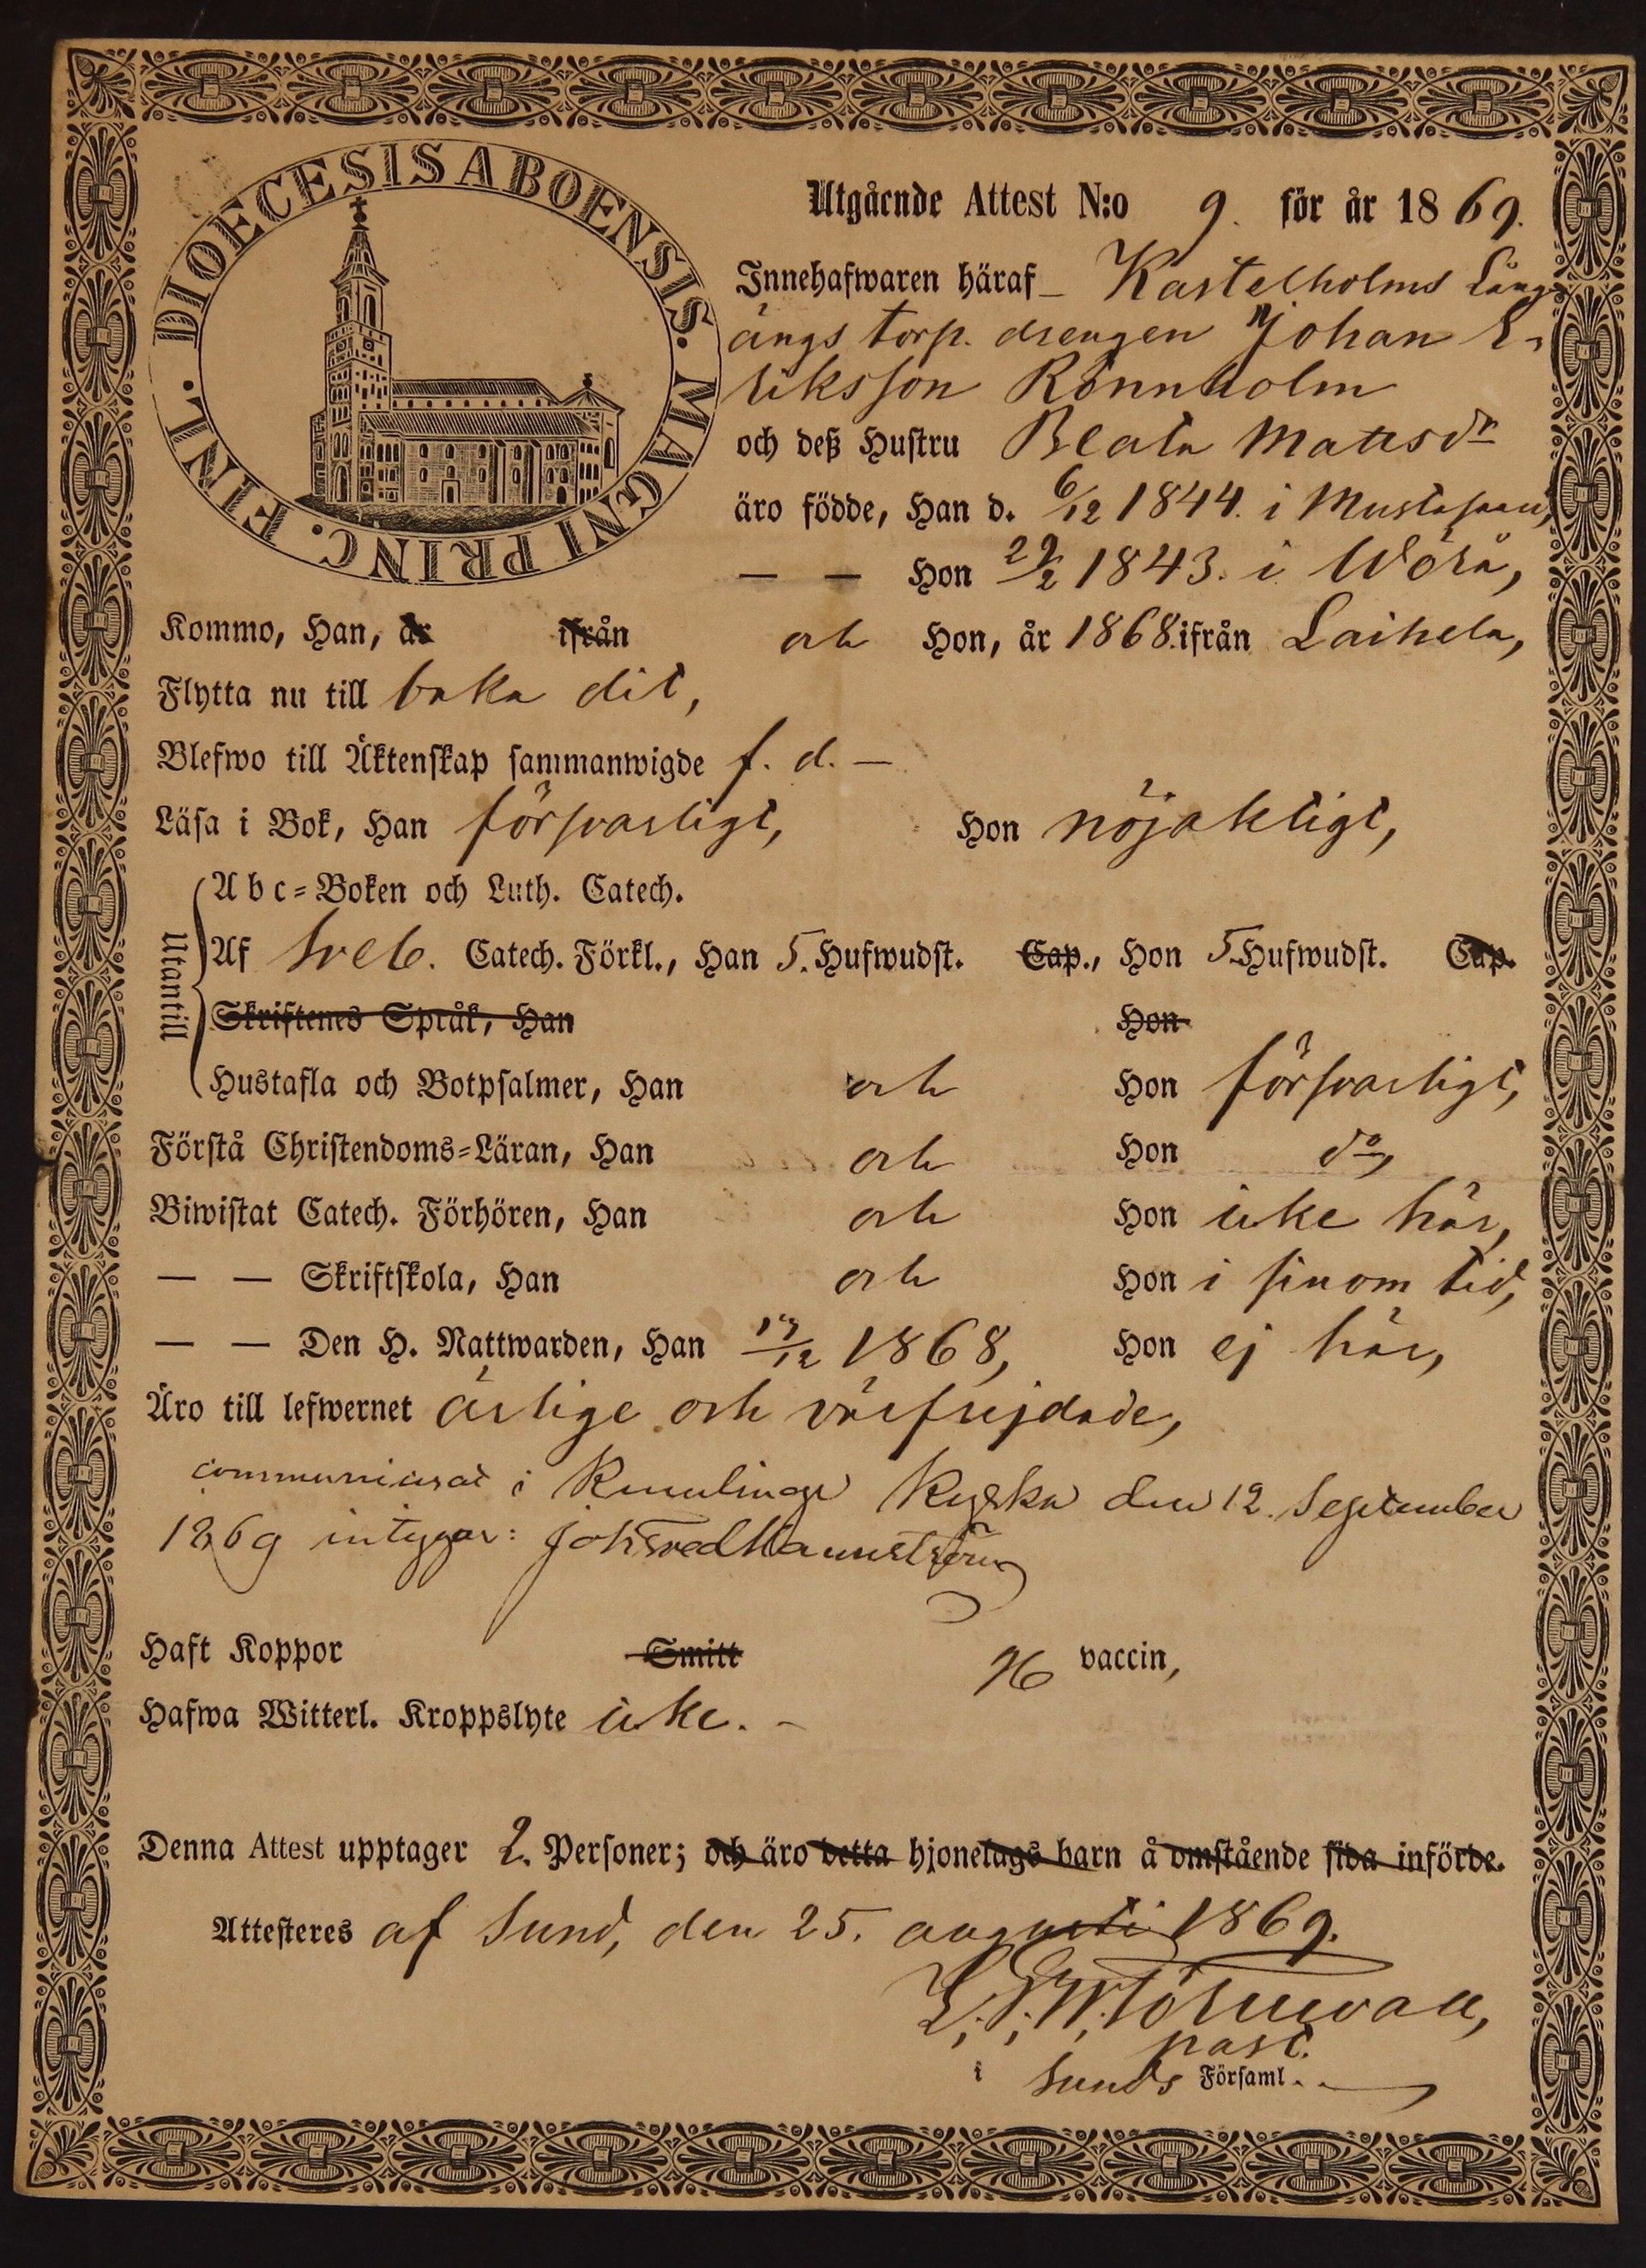 DIOECESIS ABOENSIS. MAGNI PRINC. FINL.
Utgående Attest N:o 9. för år 1869.
Innehafwaren häraf Kastelholms Lång-
ängs torp. drengen Johan E-
riksson Rönnholm
och deß Hustru Beata Matts dr
äro födde, Han d. 6/12 1844. i Mustasaari,
— — Hon 29/2 1843. i Wörå,
Kommo, Han, år ifrån och Hon, år 1868. ifrån Laihela,
Flytta nu till baka dit,
Blefwo till Äktenskap sammanwigde f. d. —
Läsa i Bok, Han försvarligt, Hon nöjaktigt,
Utantill
Abc-Boken och Luth. Catech.
Af Sveb. Catech. Förkl., Han 5. Hufwudst. Cap., Hon 5. Hufwudst. Cap.
Skriftenes Språk, Han Hon
Hustafla och Botpsalmer, Han och Hon försvarligt,
Förstå Christendoms-Läran, Han och Hon do,
Biwistat Catech. Förhören, Han och Hon icke här,
— — Skriftskola, Han och Hon i sinom tid,
— — Den H. Nattwarden, Han /12 1868, Hon ej här,
Äro till lefwernet ärlige och välfrejdade,
communicerat i Kumlinge Kyrka den 12. September
1869 intygar:
Haft Koppor Smitt vaccin,
Hafwa Witterl. Kroppslyte icke. -
Denna Attest upptager 2. Personer; och äro detta hjonelags barn å omstående sida införde.
Attesteres af Sund, den 25. augusti 1869.
past.
i Sunds Församl.